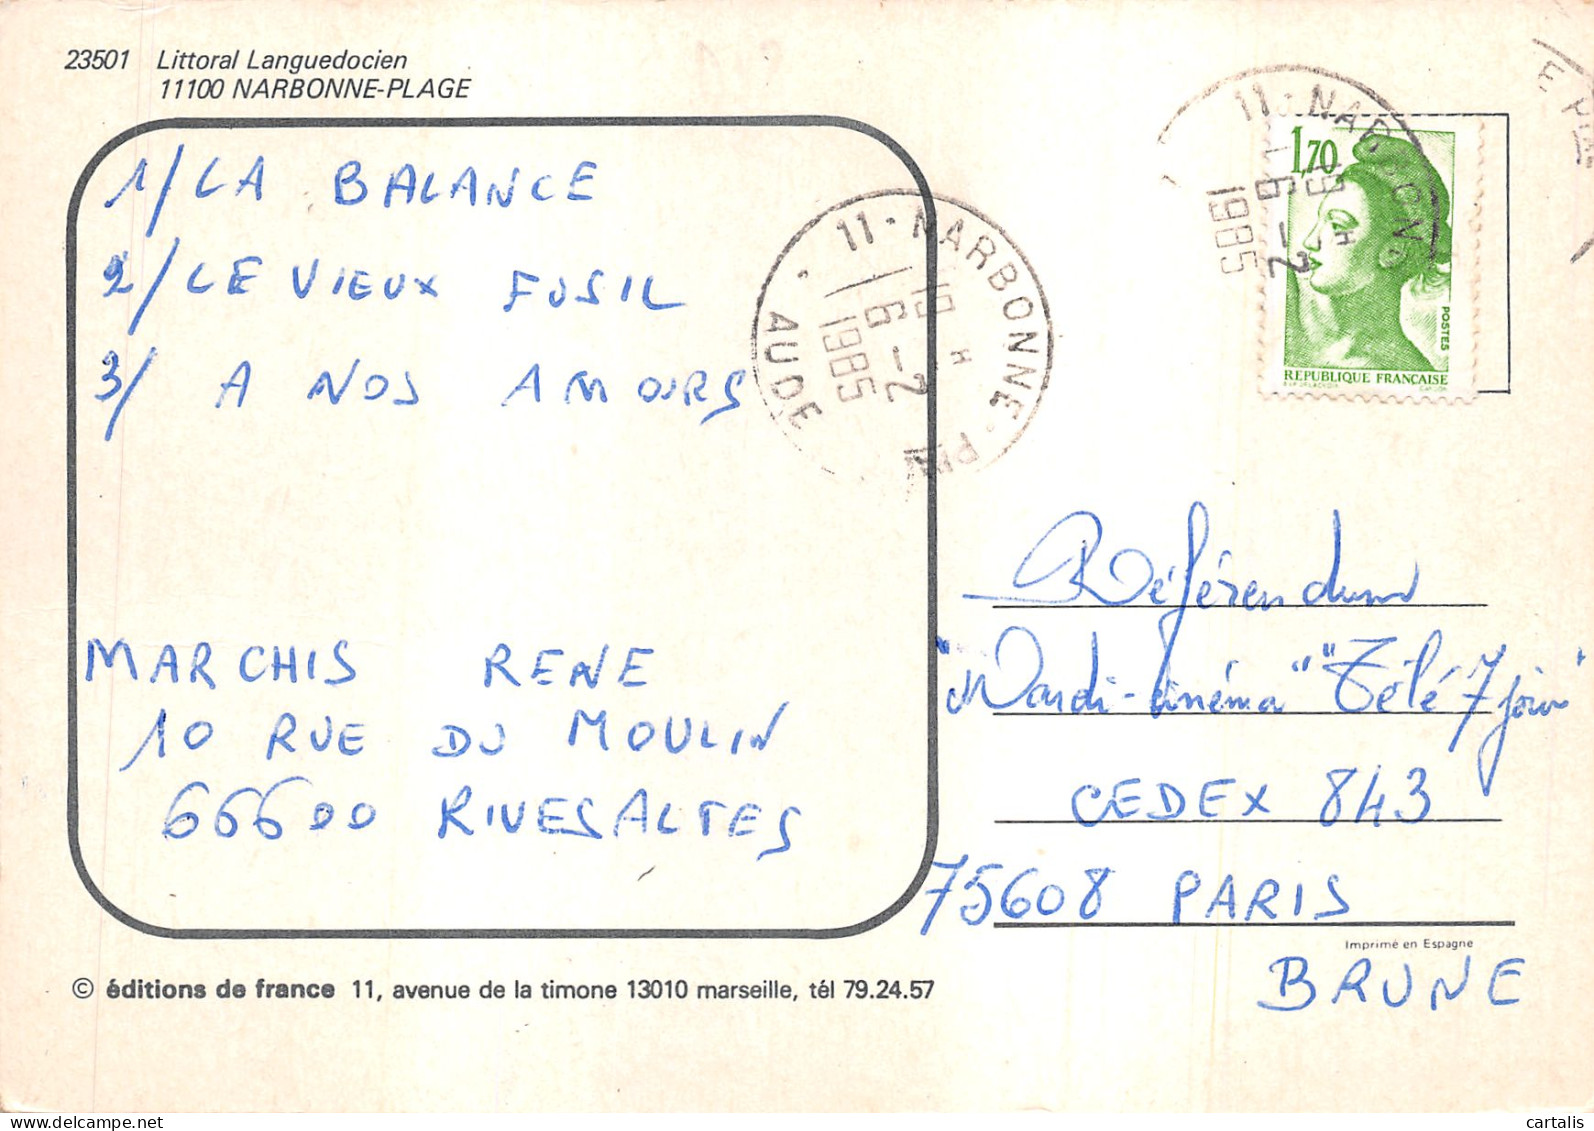 23501 Littoral Languedocien
11100 NARBONNE-PLAGE
1/ LA BALANCE
2/ LE VIEUX FUSIL
3/ A NOS AMOURS
MARCHIS RENE
10 RUE DU MOULIN
66600 RIVESALTES
© éditions de france 11, avenue de la timone 13010 marseille, tél 79.24.57
11 · NARBONNE-PLA
19 H
6 - 2
1985
AUDE
11 · NARBONN
19 H
6 - 2
1985
E PLA
1,70
POSTES
REPUBLIQUE FRANCAISE
Référendum
"Mardi-cinéma" "Télé 7 jours"
CEDEX 843
75608 PARIS
Imprimé en Espagne
BRUNE
delcampe.net
cartalis